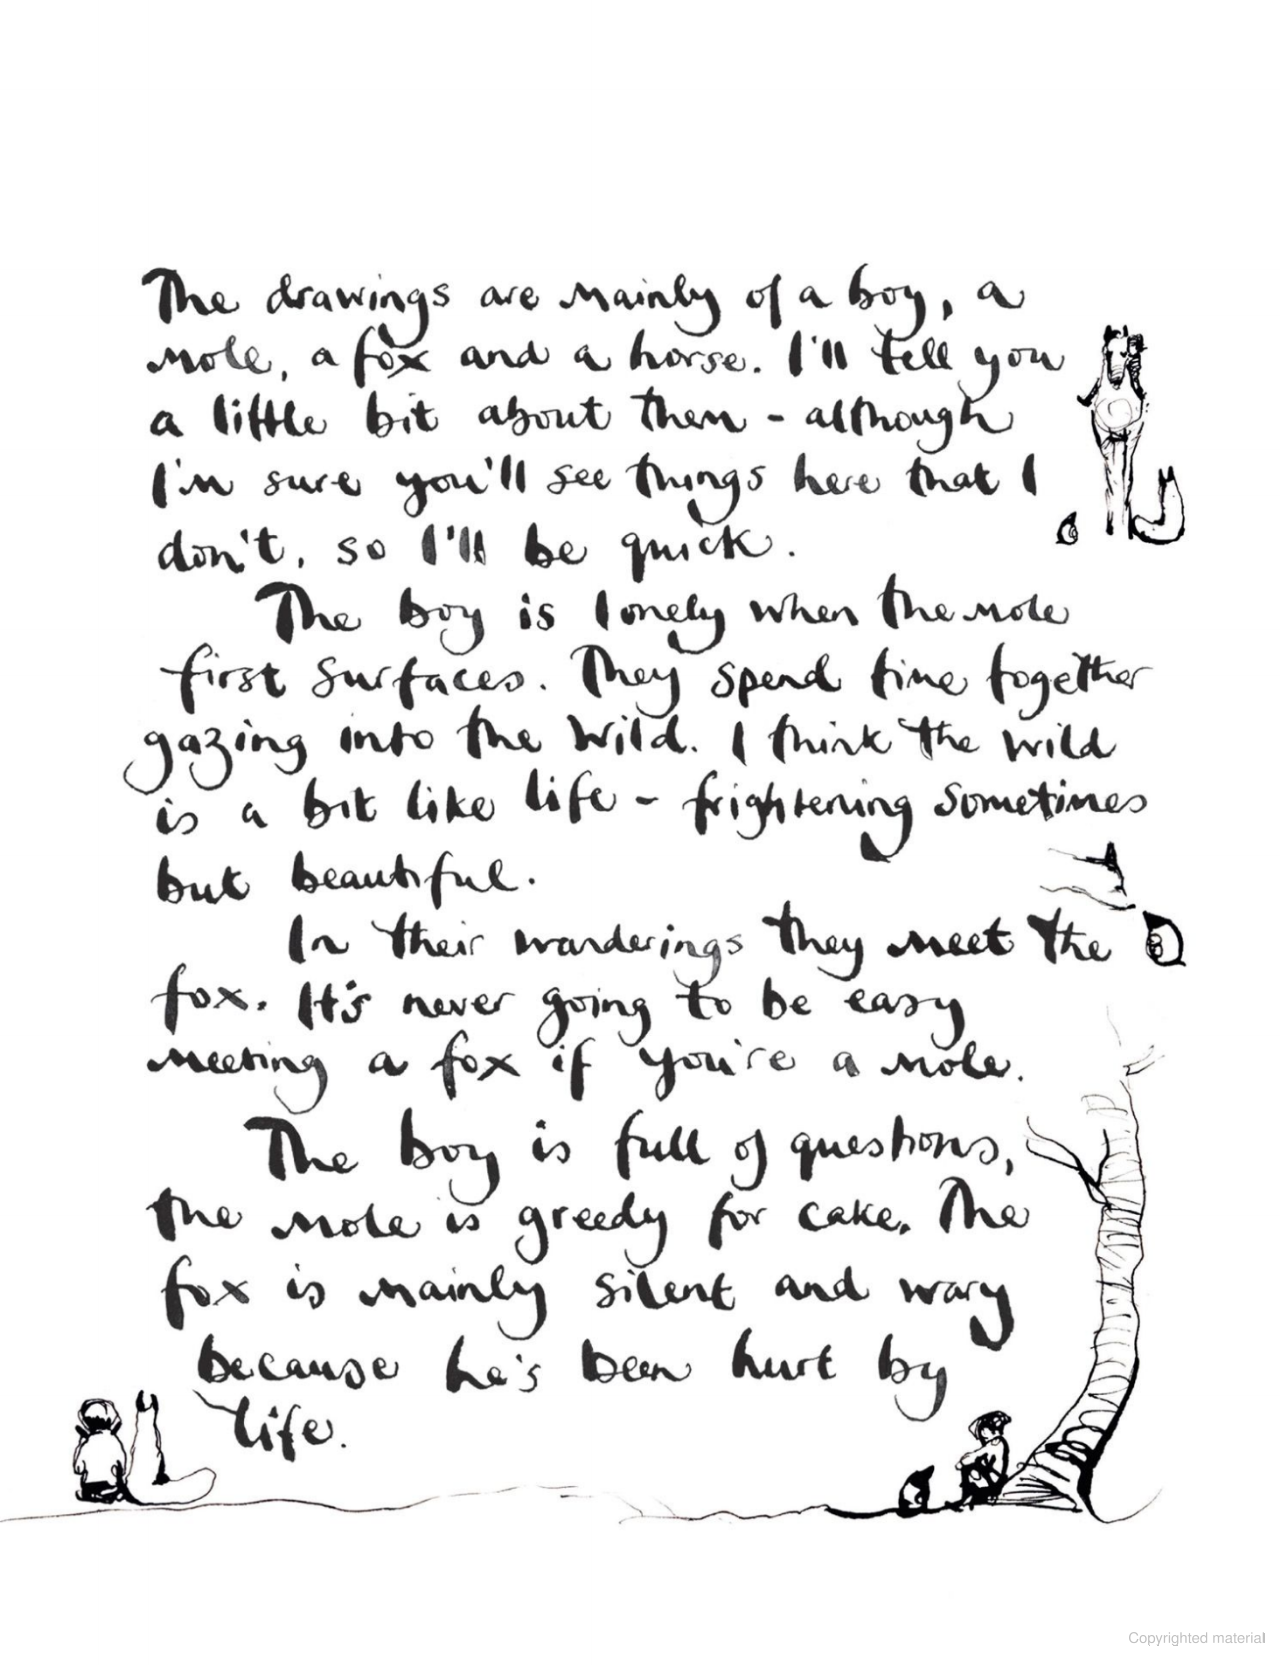 The drawings are mainly of a boy, a
mole, a fox and a horse. I'll tell you
a little bit about them - although
I'm sure you'll see things here that I
don't, so I'll be quick.
The boy is lonely when the mole
first surfaces. They spend time together
gazing into the wild. I think the wild
is a bit like life - frightening sometimes
but beautiful.
In their wanderings they meet the
fox. It's never going to be easy
meeting a fox if you're a mole.
The boy is full of questions,
the mole is greedy for cake. The
fox is mainly silent and wary
because he's been hurt by
life.
Copyrighted material